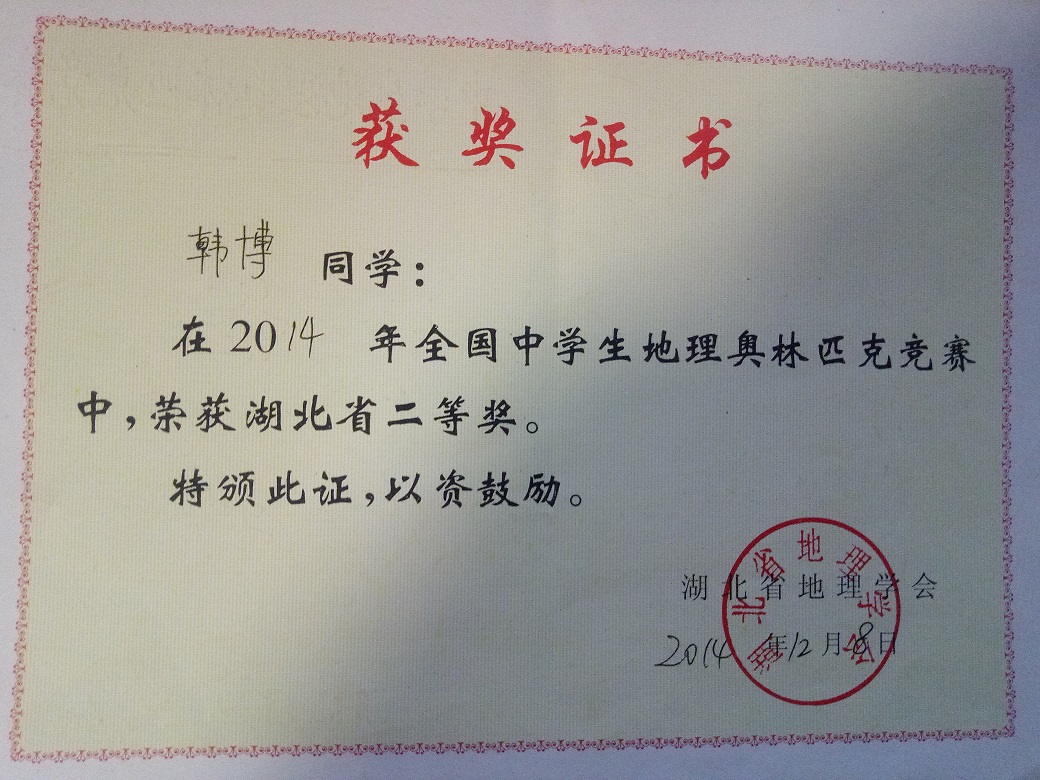 获奖证书
韩博 同学：
在2014 年全国中学生地理奥林匹克竞赛
中，荣获湖北省二等奖。
特颁此证，以资鼓励。
湖北省地理学会
2014 年12月8日
湖北省地理学会